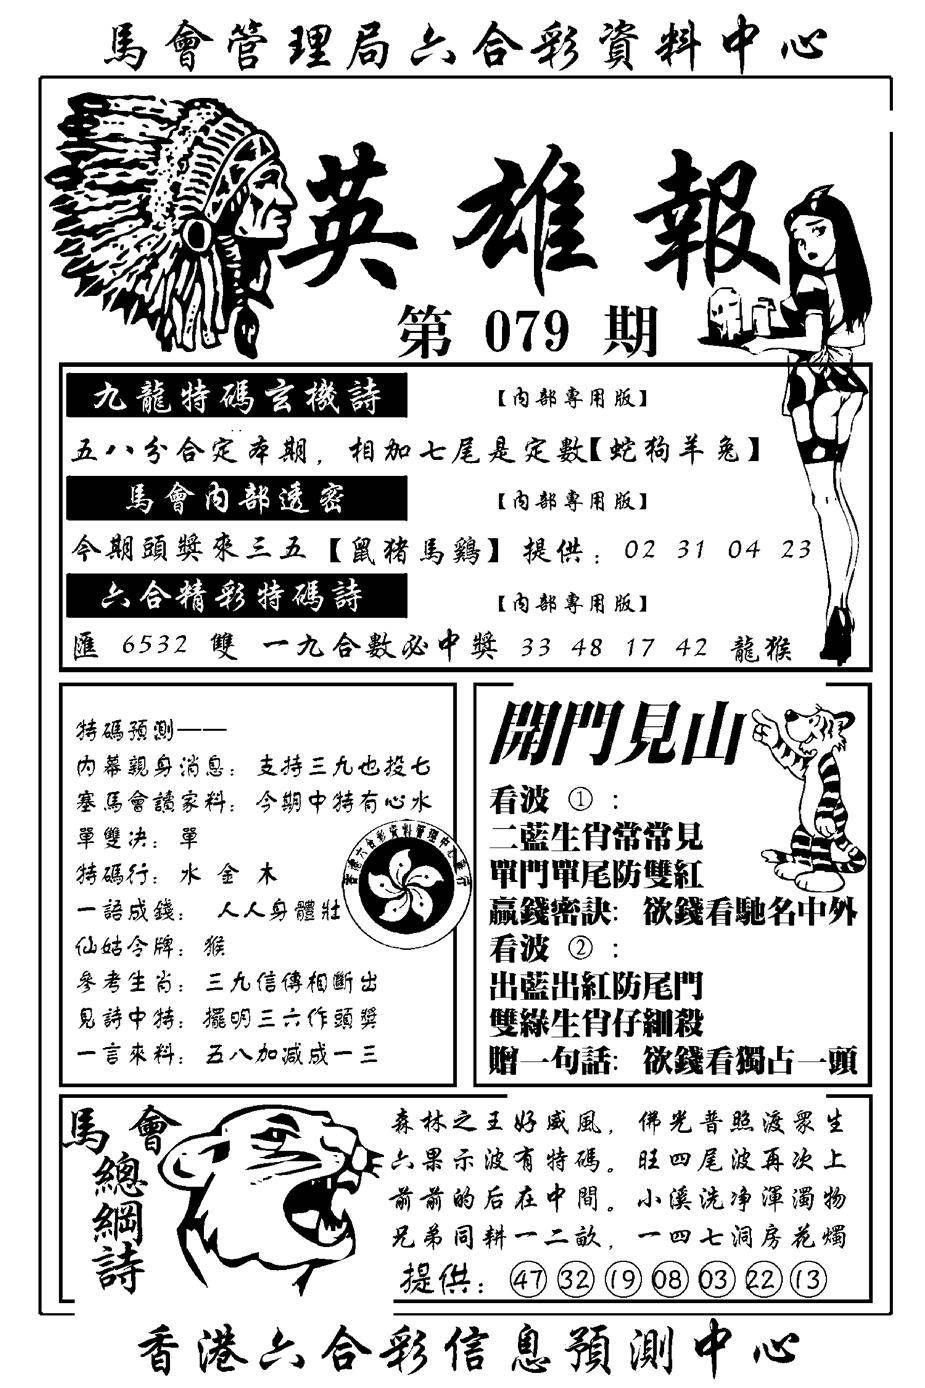 馬會管理局六合彩資料中心
英雄報
第 079 期
九龍特碼玄機詩 【內部專用版】
五八分合定本期，相加七尾是定數【蛇狗羊兔】
馬會內部透密 【內部專用版】
今期頭獎來三五【鼠猪馬鷄】提供：02 31 04 23
六合精彩特碼詩 【內部專用版】
匯 6532 雙 一九合數必中獎 33 48 17 42 龍猴
特碼預測——
內幕親身消息：支持三九也投七
塞馬會讀家料：今期中特有心水
單雙决：單
特碼行：水 金 木
一語成錢： 人人身體壯
仙姑令牌：猴
參考生肖：三九信傳相斷出
見詩中特：擺明三六作頭獎
一言來料：五八加减成一三
香港六合彩資料管理中心發行
開門見山
看波 ①：
二藍生肖常常見
單門單尾防雙紅
贏錢密訣：欲錢看馳名中外
看波 ②：
出藍出紅防尾門
雙綠生肖仔細殺
贈一句話：欲錢看獨占一頭
馬會
總綱詩
森林之王好威風，佛光普照渡衆生
六果示波有特碼。旺四尾波再次上
前前的后在中間。小溪洗净渾濁物
兄弟同耕一二畝，一四七洞房花燭
提供：㊼㉜⑲⑧③㉒⑬
香港六合彩信息預測中心